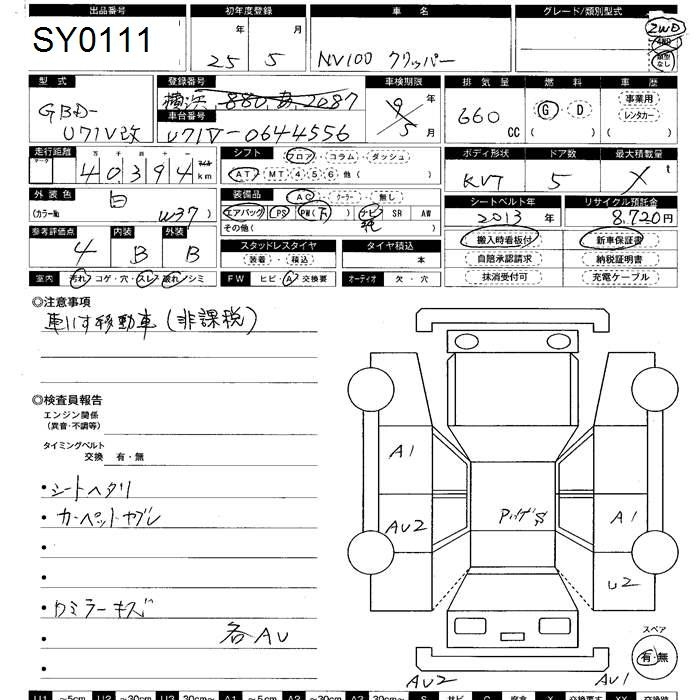 出品番号 初年度登録 車名 グレード/類別型式
SY0111 25年 5月 NV100 クリッパー 2WD 4WD 類別なし
型式 登録番号 車検期限 排気量 燃料 車歴
GBD-U71V改 横浜 880 あ 2087 9年 5月 660 CC G・D ( ) 事業用 レンタカー ( )
車台番号
U71V-0644556
走行距離 シフト フロア・コラム・ダッシュ ボディ形状 ドア数 最大積載量
十万 千 百 十 40394 マイル km AT・MT 4・5・6 他( ) KVT 5 X t
外装色 装備品 AC・クーラー・無し シートベルト年 リサイクル預託金
白 (カラーNo. W37) エアバッグ PS PW(下) ナビ 純 SR AW 2013年 8,720円
その他( )
参考評価点 内装 外装 搬入時看板付 新車保証書
4 B B スタッドレスタイヤ タイヤ積込 自賠承認請求 納税証明書
装着・積込 本 抹消受付可 充電ケーブル
室内 汚れ・コゲ・穴・スレ・破れ・シミ FW ヒビ・A・交換要 オーディオ 欠・穴
◎注意事項
車いす移動車(非課税)
◎検査員報告
エンジン関係
(異音・不調等)
タイミングベルト
交換 有・無
・シートヘタリ
・カーペットヤブレ
・ワミラーキズ
各AU
A1
AU2
A1
U2
スペア
有・無
AU2 AU1
U1 ~5cm U2 ~30cm U3 30cm~ A1 ~5cm A2 ~30cm A3 30cm~ S サビ C 腐食 X 交換要す XX 交換